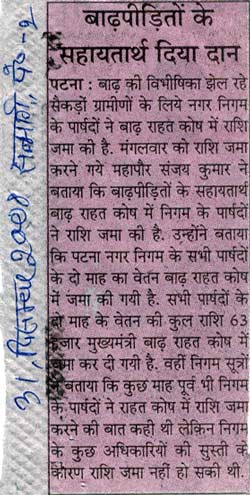 बाढ़पीड़ितों के
सहायतार्थ दिया दान
पटना : बाढ़ की विभीषिका झेल रहे
सैकड़ों ग्रामीणों के लिये नगर निगम
के पार्षदों ने बाढ़ राहत कोष में राशि
जमा की है. मंगलवार को राशि जमा
करने गये महापौर संजय कुमार ने
बताया कि बाढ़पीड़ितों के सहायतार्थ
बाढ़ राहत कोष में निगम के पार्षदों
ने राशि जमा की है. उन्होंने बताया
कि पटना नगर निगम के सभी पार्षदों
के दो माह का वेतन बाढ़ राहत कोष
में जमा की गयी है. सभी पार्षदों के
दो माह के वेतन की कुल राशि 63
हजार मुख्यमंत्री बाढ़ राहत कोष में
जमा कर दी गयी है. वहीं निगम सूत्रों
ने बताया कि कुछ माह पूर्व भी निगम
के पार्षदों ने राहत कोष में राशि जमा
करने की बात कही थी लेकिन निगम
के कुछ अधिकारियों की सुस्ती के
कारण राशि जमा नहीं हो सकी थी.
31, सितम्बर 2008 सन्मार्ग, पे०-2